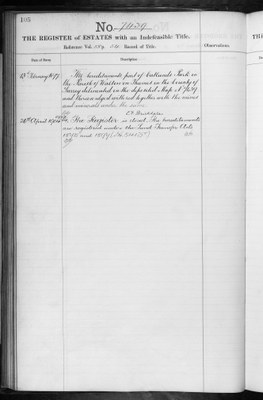 168
No. 7439
THE REGISTER of ESTATES with an Indefensible Title.
Reference Vol. Record of Title.
Observations.
Date of Entry. Description
The hereditaments part of Oatlands Park in
the Parish of Walton on Thames in the County of
Surrey delineated in the deposited Map No 7439
and thereon edged with red together with the mines
and minerals under the same
24th April
The Register is closed. The hereditaments
are registered under the Land Transfer Acts
1875 and 1897